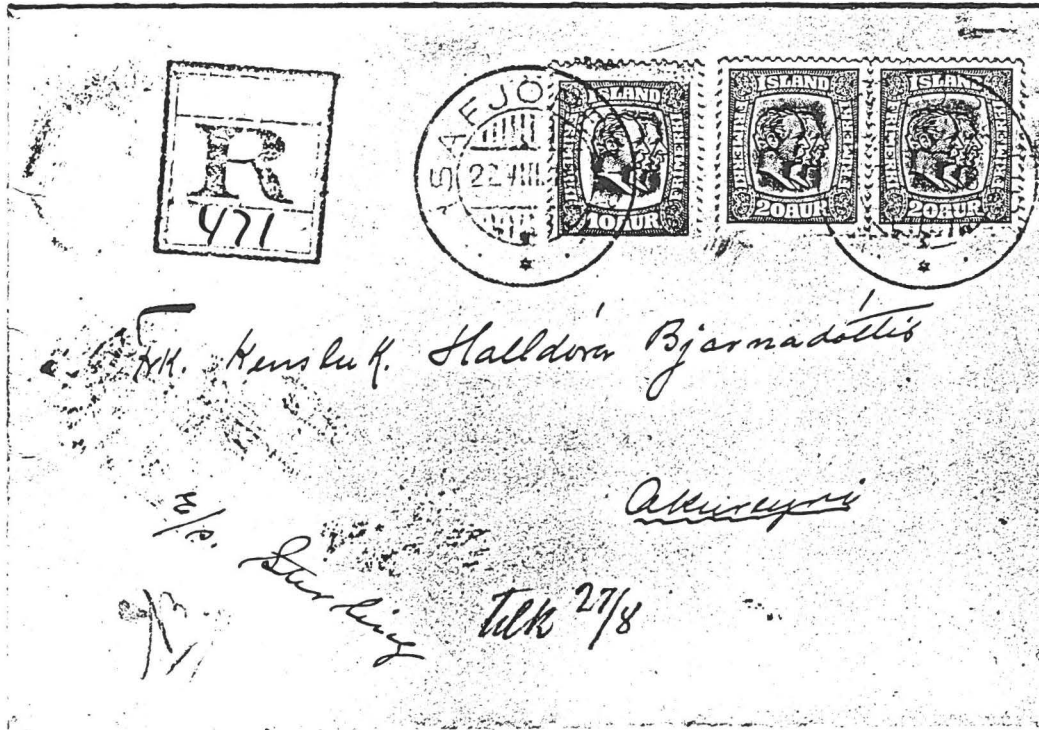 R
471
ÍSAFJÖ
22.VIII.
ISLAND
10 AUR
ISLAND
20 AUR
ISLAND
20 AUR
Frk. Kenslu K. Halldóra Bjarnadóttir
Akureyri
E/s. Sterling
tilk 27/8